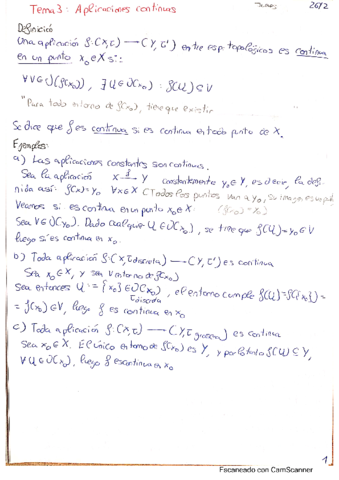 Tema 3: Aplicaciones continuas
Jueves 26/2
Definició
Una aplicación f:(X,τ) → (Y,τ') entre esp. topológicos es continua
en un punto x₀∈X si:
∀V∈U(f(x₀)), ∃U∈U(x₀) : f(U)⊆V
"Para todo entorno de f(x₀), tiene que existir
Se dice que f es continua si es continua en todo punto de X.
Ejemplos:
a) Las aplicaciones constantes son continuas.
Sea la aplicación X →f Y constantemente y₀∈Y, es decir, la defi-
nida así: f(x)=y₀ ∀x∈X (Todos los puntos van a y₀, su imagen es
Veamos si es continua en un punto x₀∈X
Sea V∈U(y₀). Dado cualquier U∈U(x₀), se tiene que f(U)=y₀∈V
luego si es continua en x₀
b) Toda aplicación f:(X,τdiscreta) → (Y,τ') es continua
Sea x₀∈X, y sea V entorno de f(x₀)
Sea entonces U:={x₀}∈U(x₀), el entorno cumple f(U)=f({x₀})=
τdiscreta
=f(x₀)∈V, luego f es continua en x₀
c) Toda aplicación f:(X,τ) → (Y,τgrosera) es continua
Sea x₀∈X. El único entorno de f(x₀) es Y, y por tanto f(U)⊆Y,
∀U∈U(x₀), luego f es continua en x₀
1
Escaneado con CamScanner